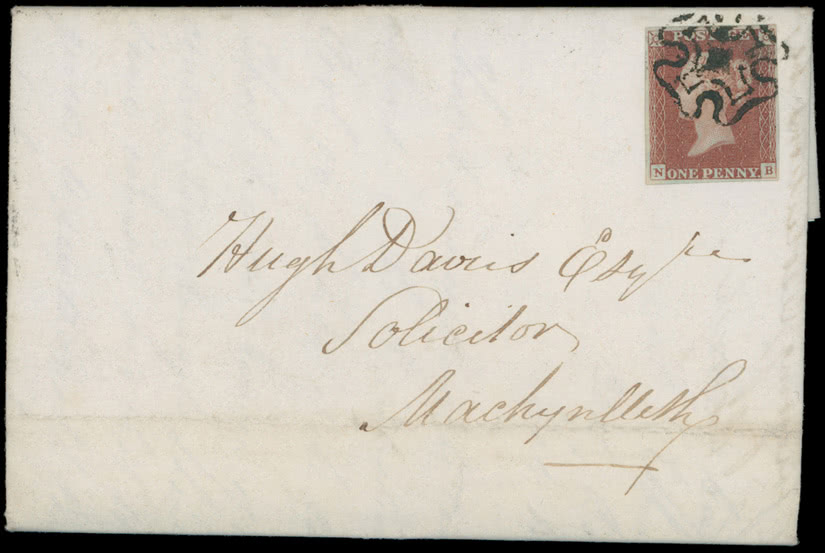 POSTAGE
N ONE PENNY. B
Hugh Davies Esqre
Solicitor
Machynlleth